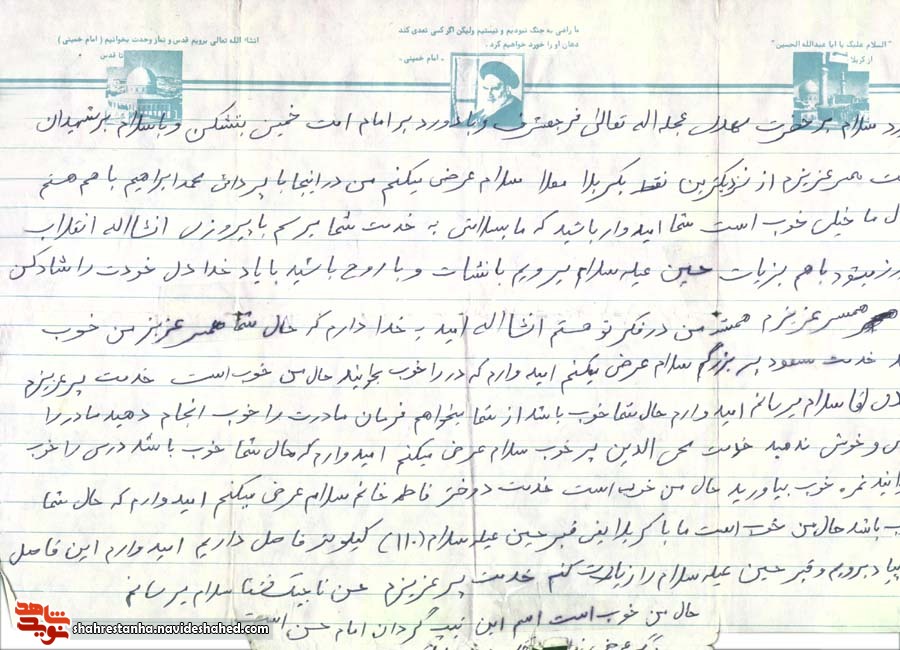 "السلام علیک یا ابا عبدالله الحسین"
از کربلا
ما راضی به جنگ نبودیم و نیستیم ولیکن اگر کسی تعدی کند
دهان او را خورد خواهیم کرد.
« امام خمینی »
انشاء الله تعالی برویم قدس و نماز وحدت بخوانیم ( امام خمینی )
تا قدس
سلام بر حضرت مهدی عجله اله تعالی فرجهشریف و با درود بر امام امت خمین بتشکن و باسلام بر شهیدان
همسر عزیزم از نزدیکترین نقطه بکربلا معلا سلام عرض میکنم من در اینجا با پسر دائی محمد ابراهیم با هم هستم
ما خیلی خوب است شما امیدوار باشید که ما بسلامتی به خدمت شما برسم با پیروزی انشااله انقلاب
با هم بزیات حسین عیله سلام برویم با نشات و با روح باشید با یاد خدا دل خودت را شاد کن
همسر عزیزم همشه من در فکر تو هستم انشااله امید به خدا دارم که حال شما همسر عزیز من خوب
خدمت مسعود پسر بزرگم سلام عرض میکنم امید وارم که در را خوب بخوانید حال من خوب است خدمت پسر عزیزم
اقا سلام میرسانم امید وارم حال شما خوب باشد از شما میخواهم فرمان مادرت را خوب انجام دهید مادر را
و خوش ندهید خدمت محی الدین پسر خوب سلام عرض میکنم امید وارم که حال شما خوب باشد درس را خوب
نمره خوب بیاورید حال من خوب است خدمت دوختر فاطمه خانم سلام عرض میکنم امید وارم که حال شما
باشد حال من خوب است ما با کربلا یعنی قبر حسین عیله سلام (۱۱۰) کیلومتر فاصل داریم امید وارم این فاصل
برویم و قبر حسین عیله سلام را زیارت کنم خدمت پسر عزیزم حسن سلام میرسانم
حال من خوب است اسم این تیپ گردان امام حسن است
عرض
شاهد
نوید
shahrestanha.navideshahed.com